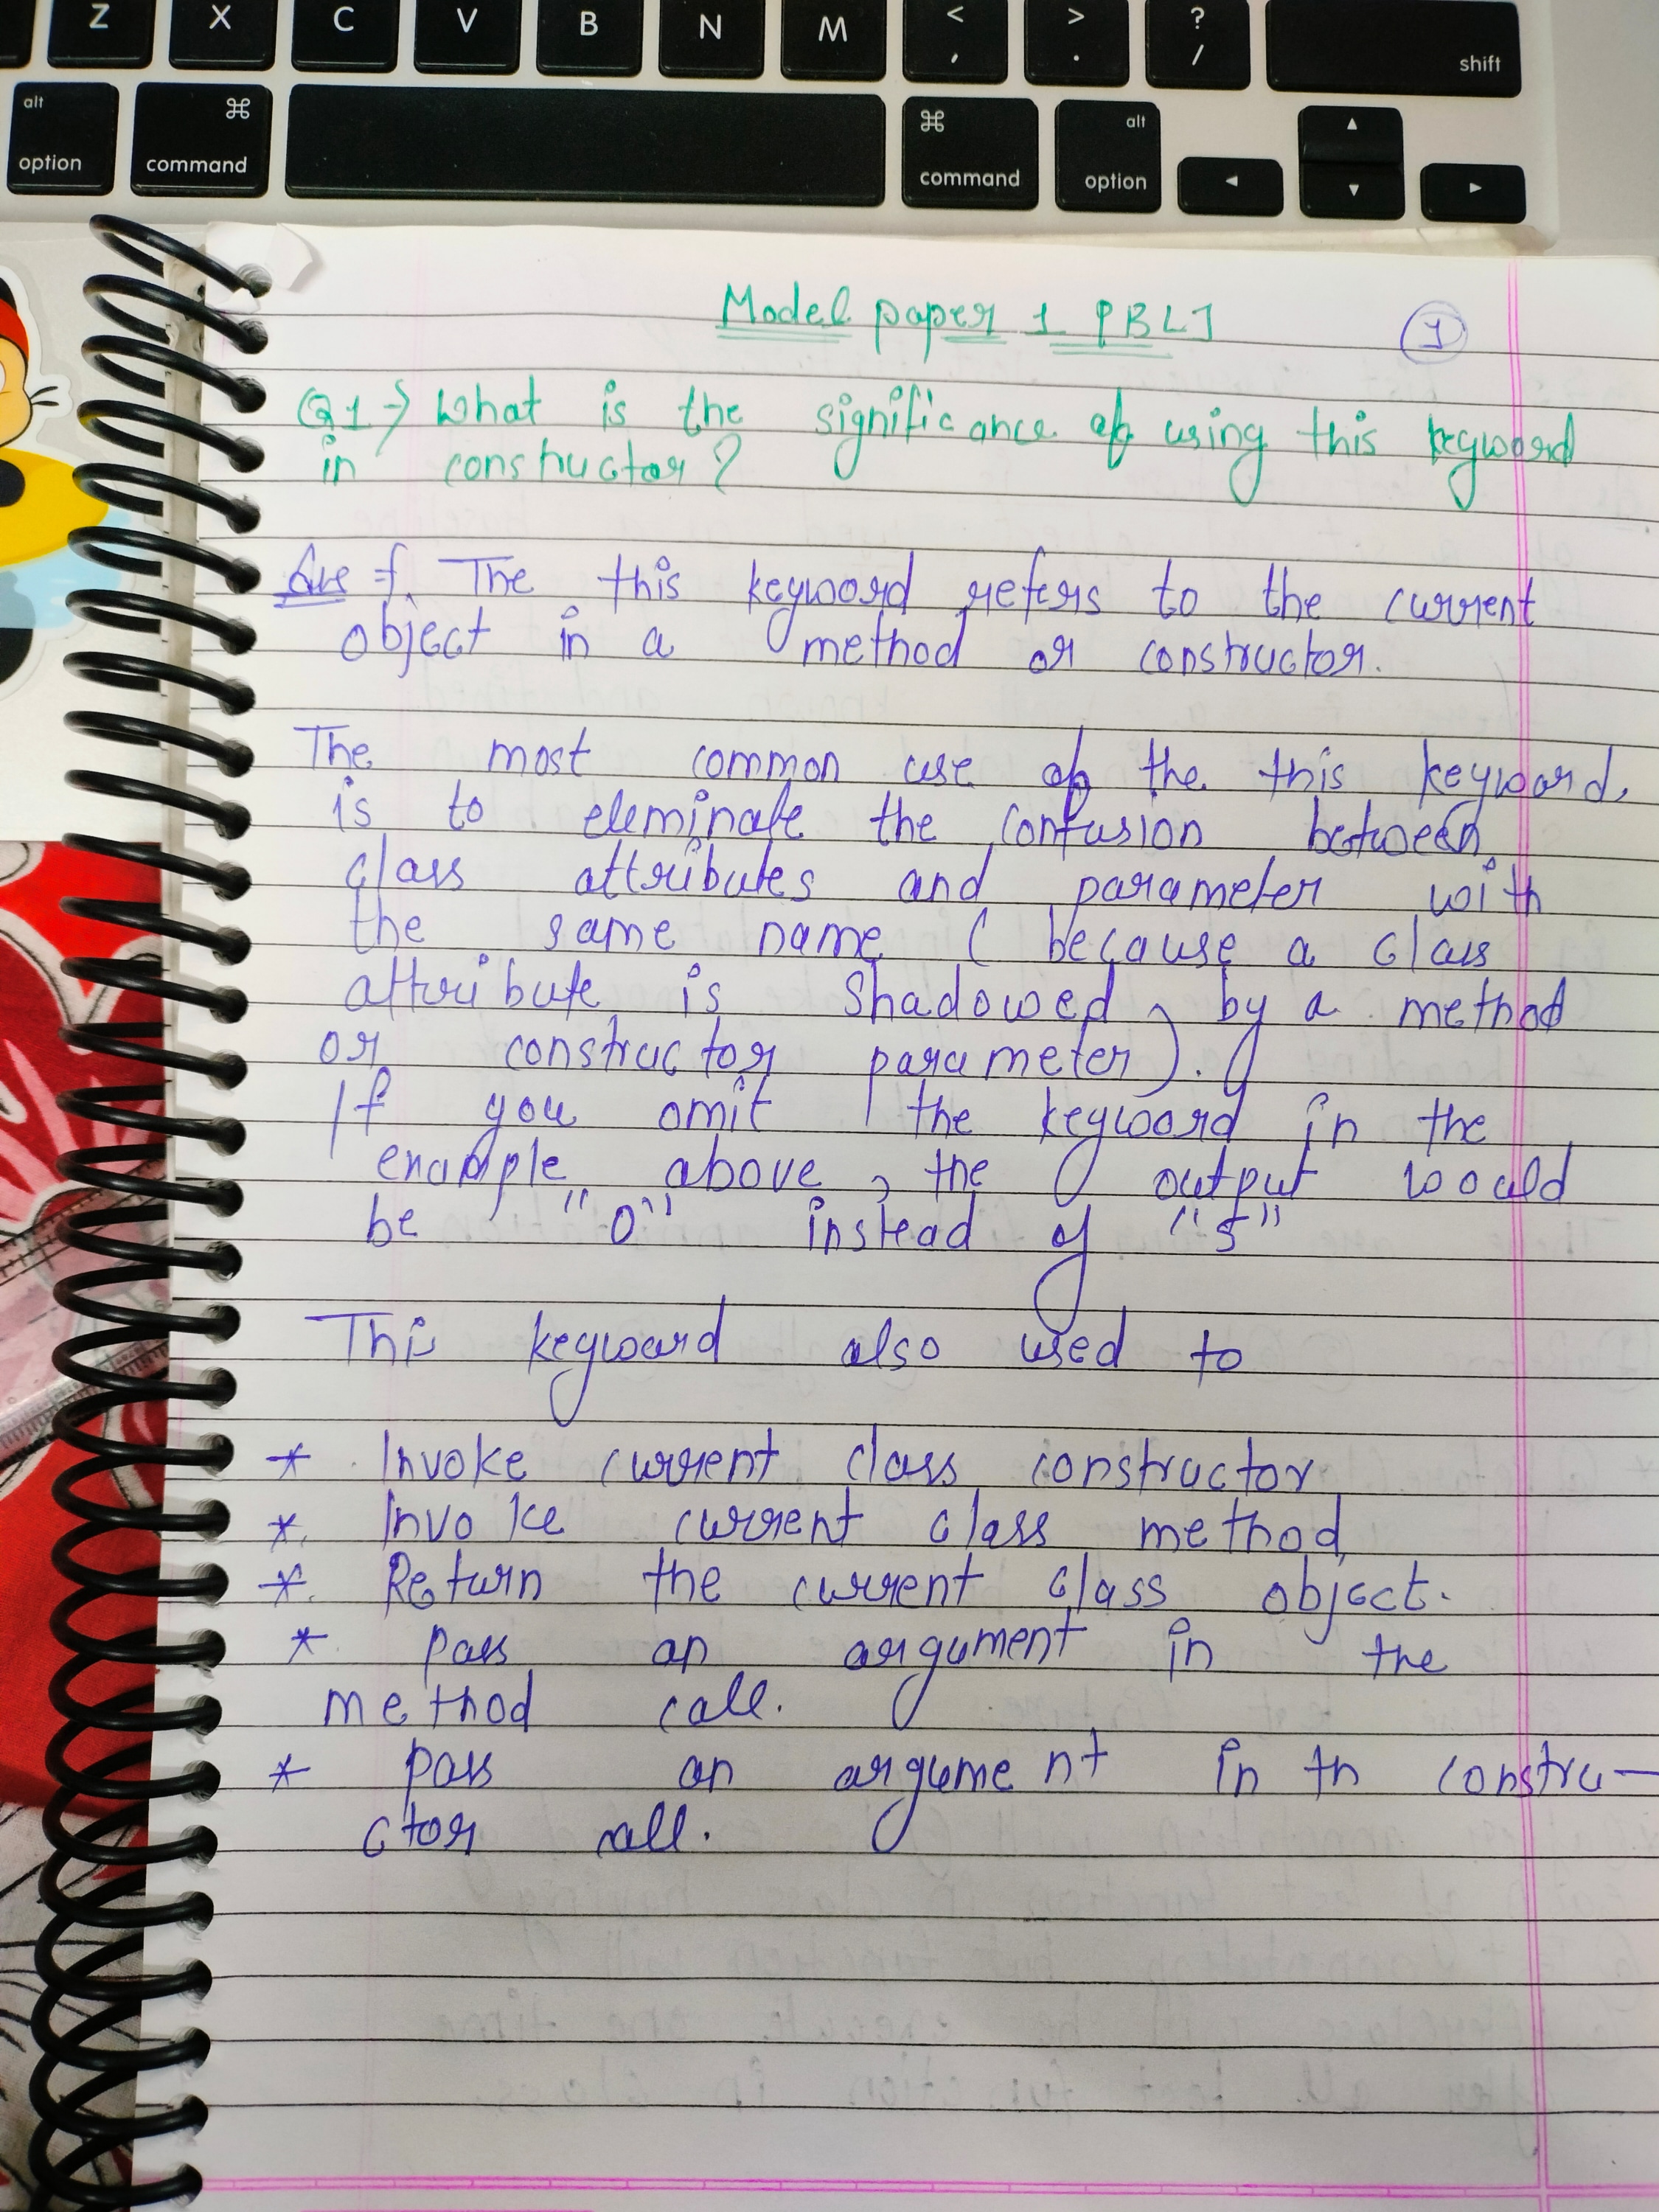 Z X C V B N M < , > . ? / shift
alt option ⌘ command ⌘ command alt option ◄ ▲ ▼ ►
Model paper 1 PBLJ
1
Q1 → What is the significance of using this keyword
in constructor?
Ans = The this keyword refers to the current
object in a method or constructor.
The most common use of the this keyword,
is to eleminate the confusion between
class attributes and parameter with
the same name ( because a class
attribute is Shadowed, by a method
or constructor parameter).
If you omit the keyword in the
example above, the output would
be "0" instead of "5"
This keyword also used to
* Invoke current class constructor
* Invoke current class method
* Return the current class object.
* pass an argument in the
method call.
* pass an argument in th constru-
ctor call.